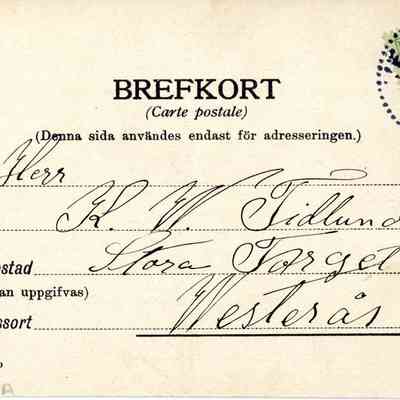 BREFKORT
(Carte postale)
(Denna sida användes endast för adresseringen.)
Herr
K. W. Tidlund
ostad Stora Torget
an uppgifvas)
ssort Westerås